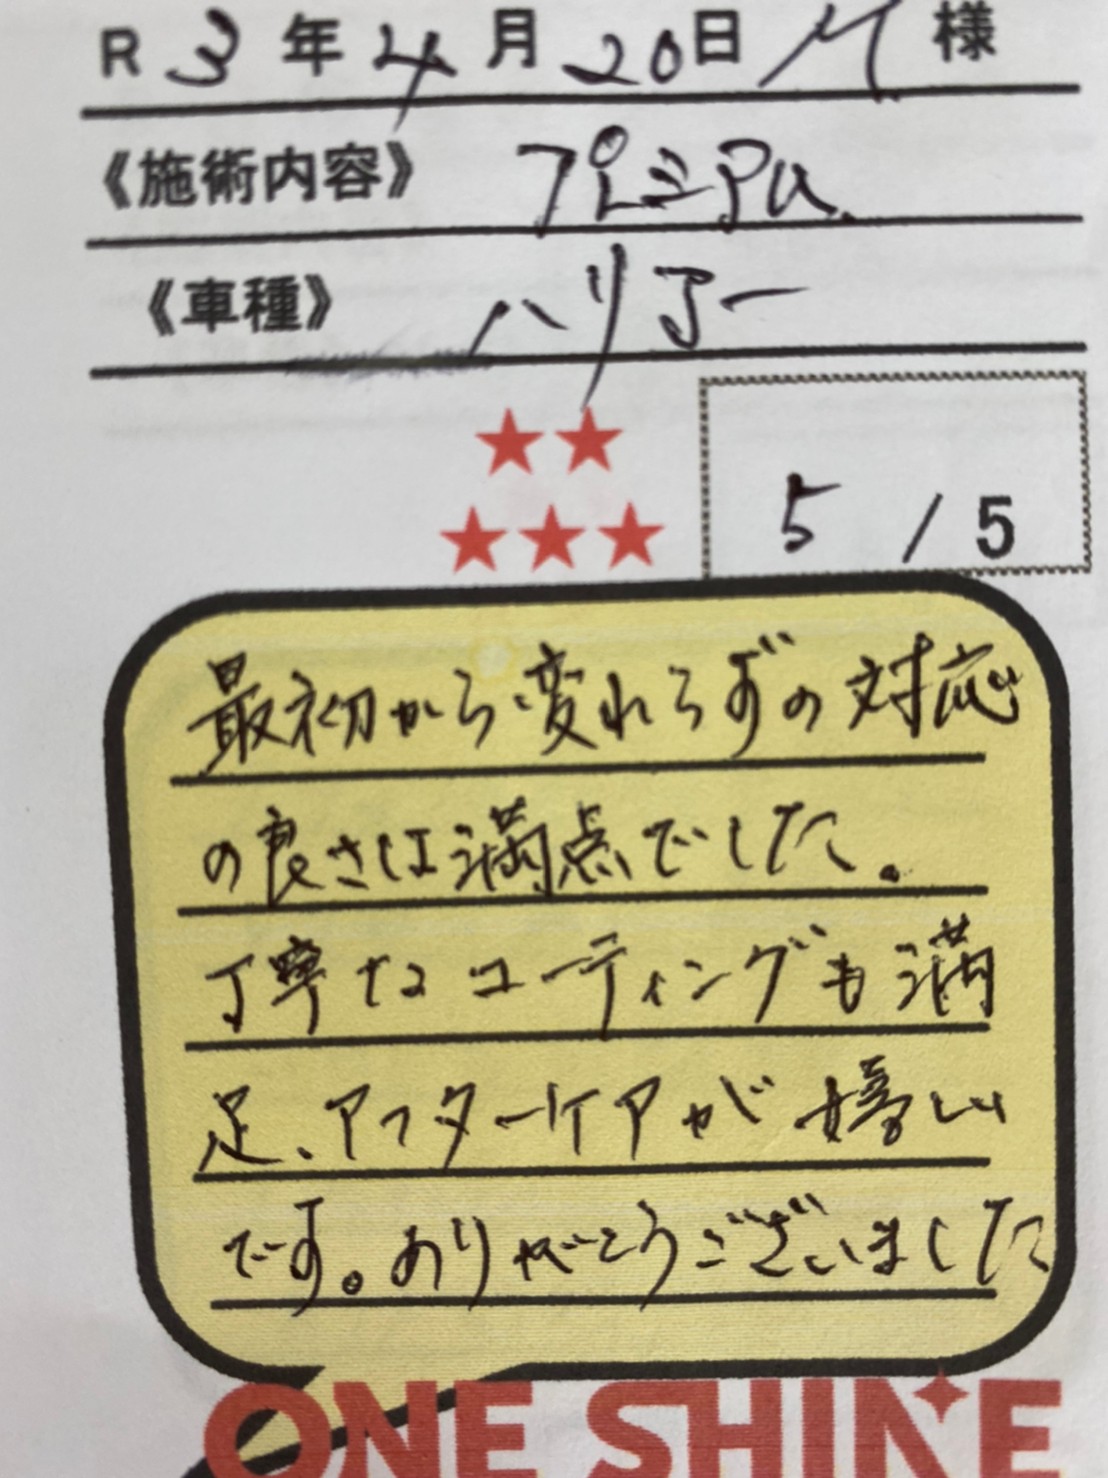 R 3 年 4 月 20 日 M 様
《施術内容》 プレミアム
《車種》 ハリアー
5 / 5
最初から変わらずの対応
の良さは満点でした。
丁寧なコーティングも満
足、アフターケアが嬉しい
です。ありがとうございました
ONE SHINE